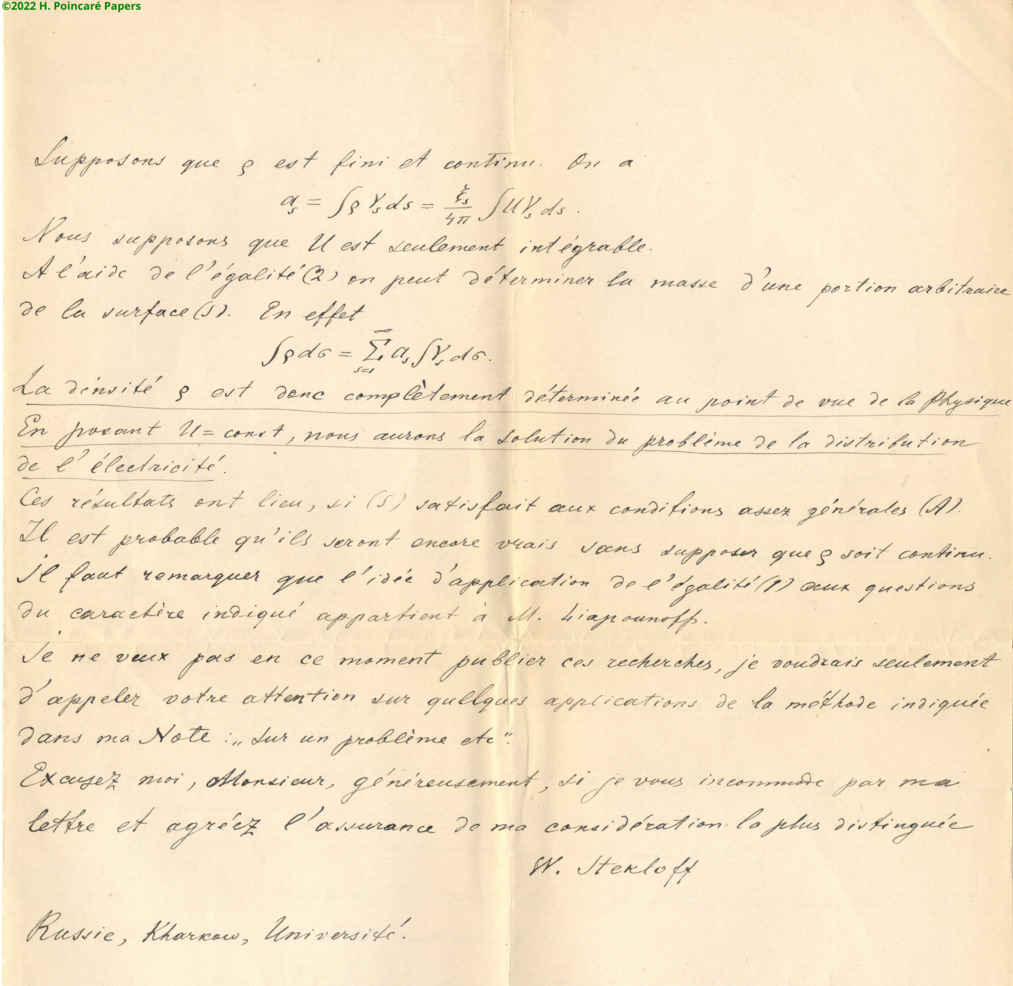 ©2022 H. Poincaré Papers
Supposons que ρ est fini et continu. On a
a_s = ∫ρ V_s ds = ξ_s/4π ∫U V_s ds.
Nous supposons que U est seulement intégrable.
A l'aide de l'égalité (2) on peut déterminer la masse d'une portion arbitraire
de la surface (S). En effet
∫ρdσ = ∑_{s=1}^{∞} a_s ∫V_s dσ.
La dénsité ρ est donc complètement déterminée au point de vue de la Physique
En posant U = const, nous aurons la solution du problème de la distribution
de l'électricité.
Ces résultats ont lieu, si (S) satisfait aux conditions assez générales (A).
Il est probable qu'ils seront encore vrais sans supposer que ρ soit continu.
Il faut remarquer que l'idée d'application de l'égalité (1) aux questions
du caractère indiqué appartient à M. Liapounoff.
Je ne veux pas en ce moment publier ces recherches, je voudrais seulement
d'appeler votre attention sur quelques applications de la méthode indiquée
dans ma Note : „Sur un problème etc".
Excusez moi, Monsieur, généreusement, si je vous incommode par ma
lettre et agréez l'assurance de ma considération la plus distinguée
W. Stekloff
Russie, Kharkow, Université.